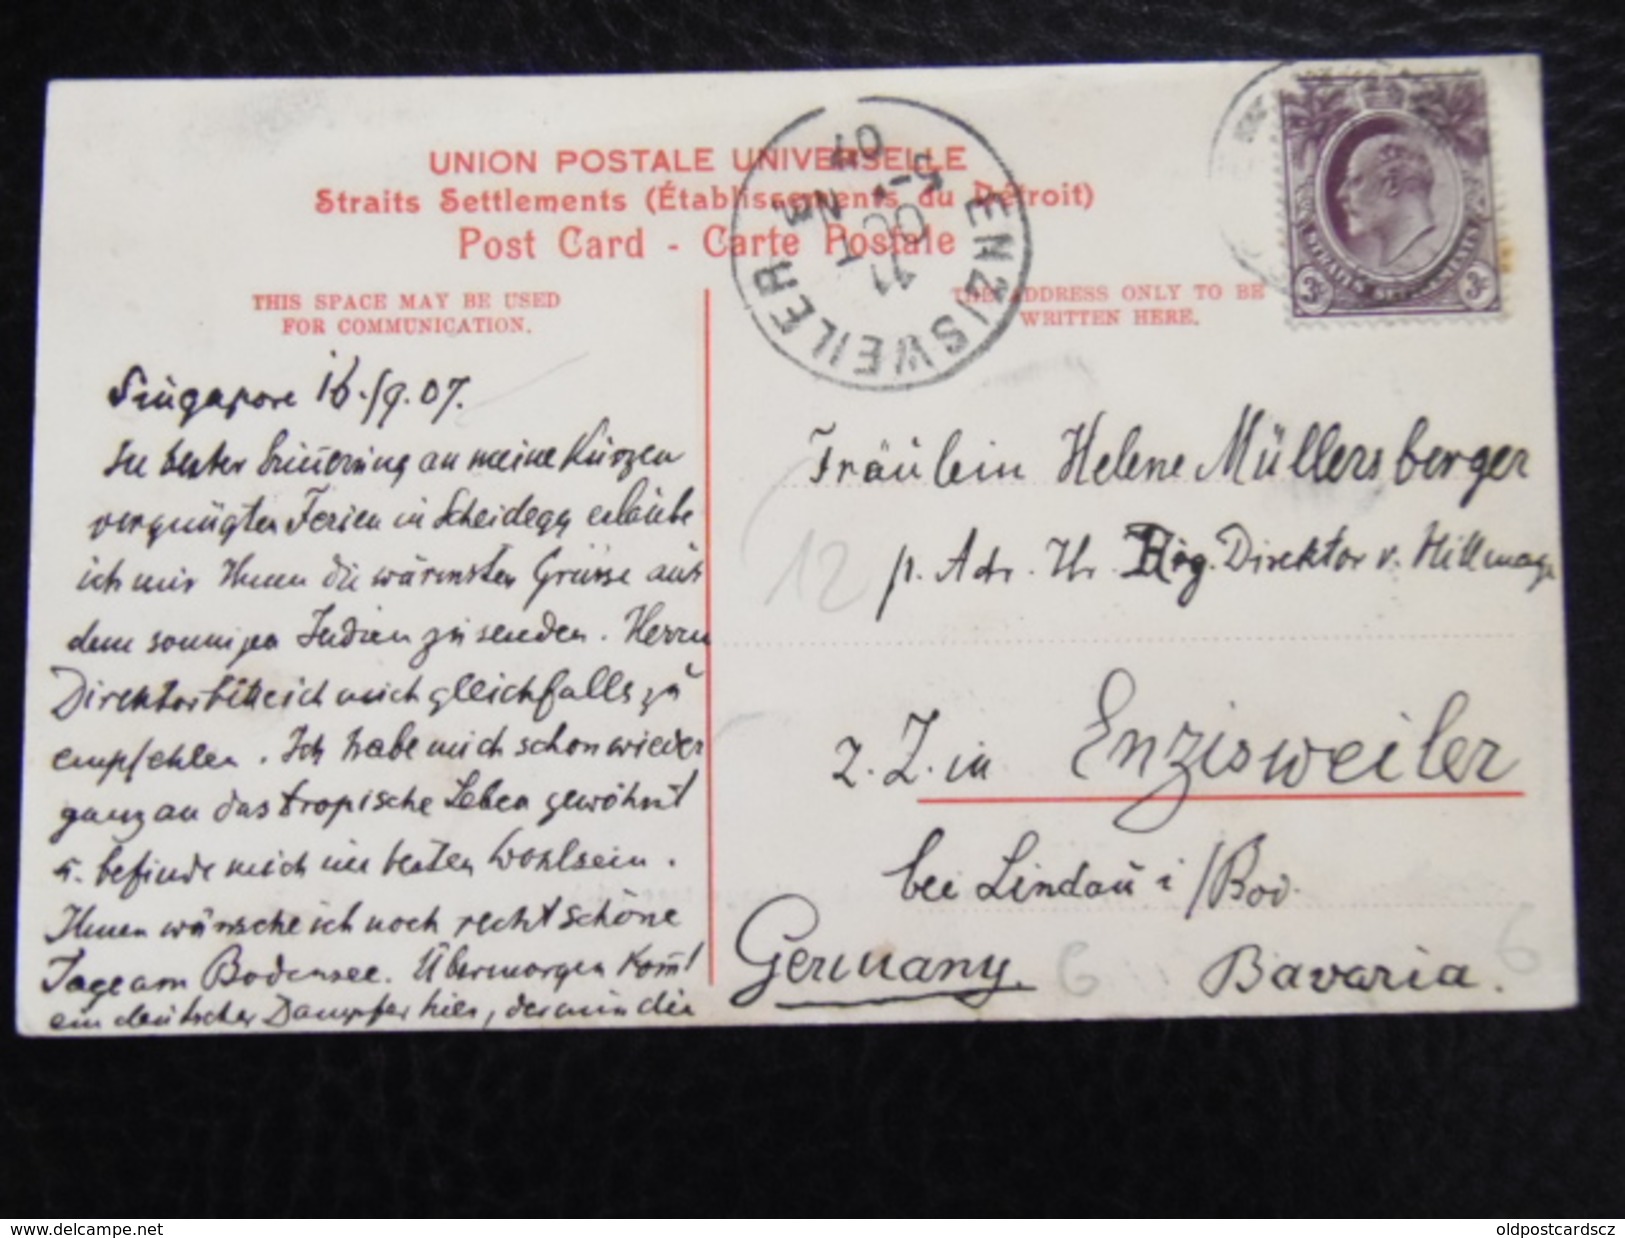 UNION POSTALE UNIVERSELLE
Straits Settlements (Établissements du Détroit)
Post Card - Carte Postale
THIS SPACE MAY BE USED
FOR COMMUNICATION.
THE ADDRESS ONLY TO BE
WRITTEN HERE.
ENZISWEILER
11 OCT
5-6 N
07
STRAITS SETTLEMENTS
3c 3c
Singapore 16./9.07.
In bester Erinnerung an meine kurzen
vergnügten Ferien in Scheidegg erlaube
ich mir Ihnen die wärmsten Grüsse aus
dem sonnigen Indien zu senden. Herrn
Direktor bitte ich mich gleichfalls zu
empfehlen. Ich habe mich schon wieder
ganz an das tropische Leben gewöhnt
u. befinde mich im besten Wohlsein.
Ihnen wünsche ich noch recht schöne
Tage am Bodensee. Übermorgen komt
ein deutscher Dampfer hier, der mir die
Fräulein Helene Müllersberger
p. Adr. Hr. Direktor v.
z. Z. in Enzisweiler
bei Lindau i/Bod.
Germany. Bavaria.
12
6 6
www.delcampe.net
oldpostcardscz